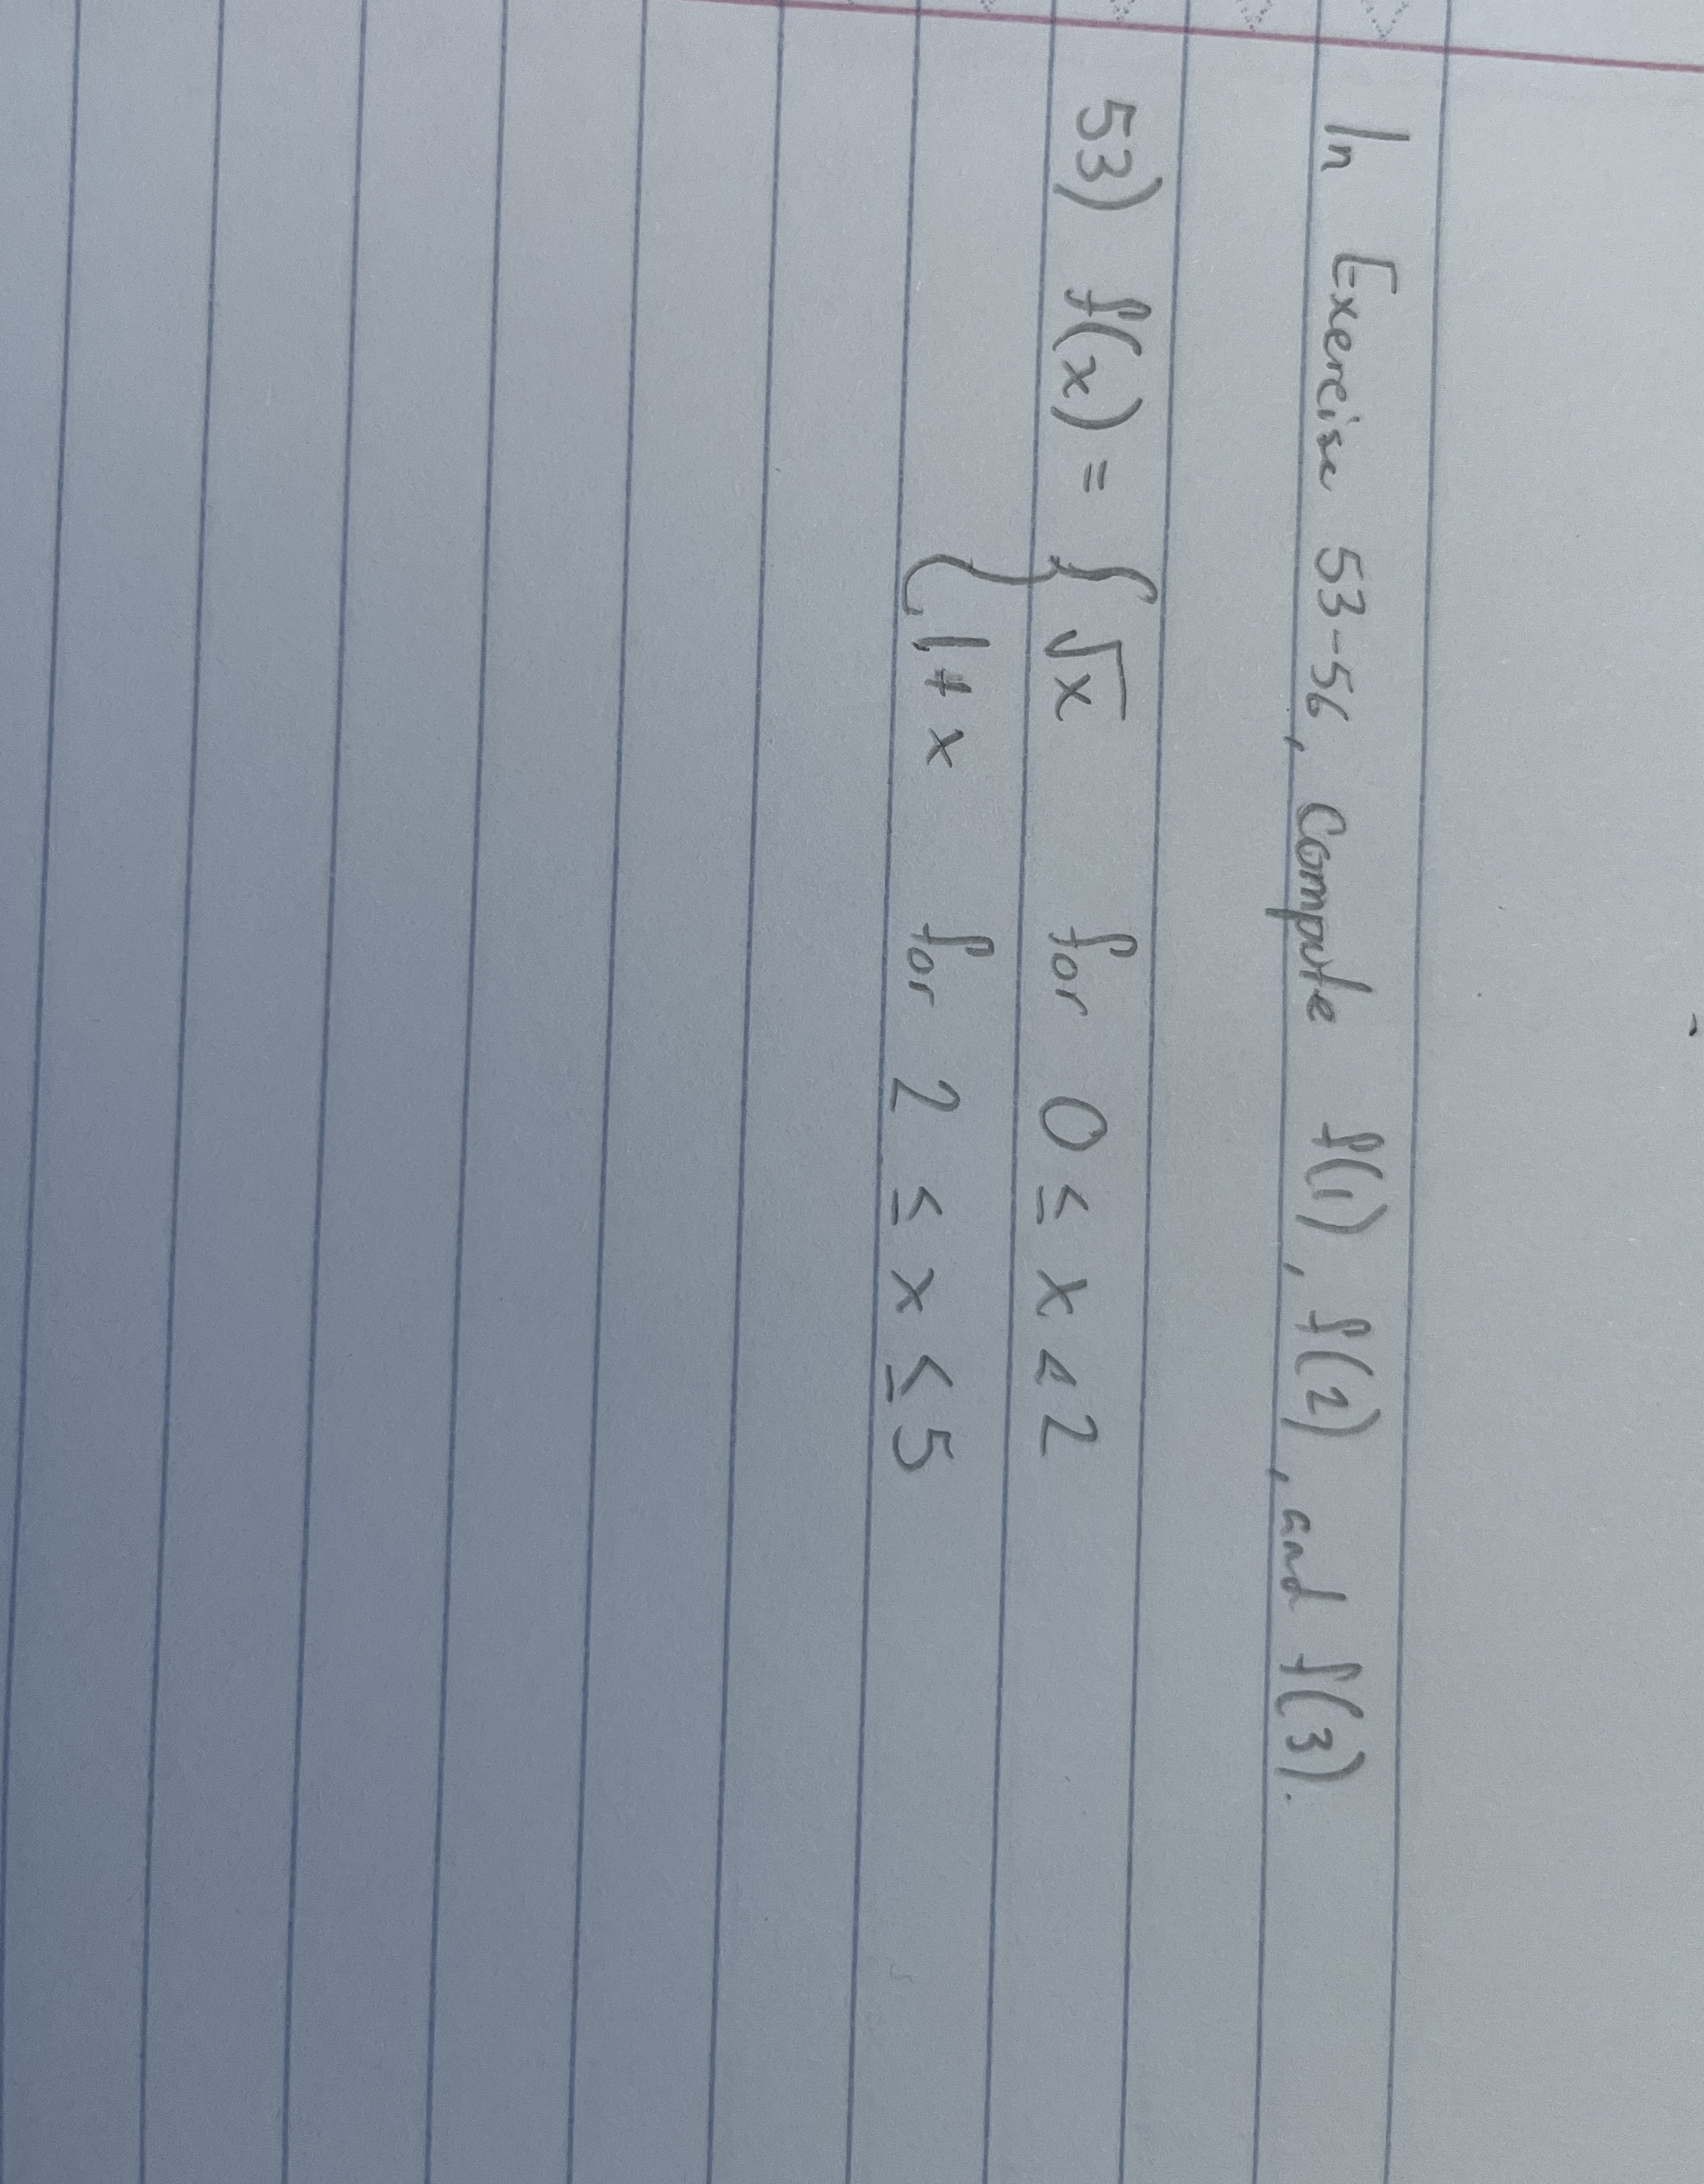 In Exercise 53-56, Compute f(1), f(2), and f(3).
53) f(x) = { √x for 0 ≤ x < 2
1+x for 2 ≤ x ≤ 5